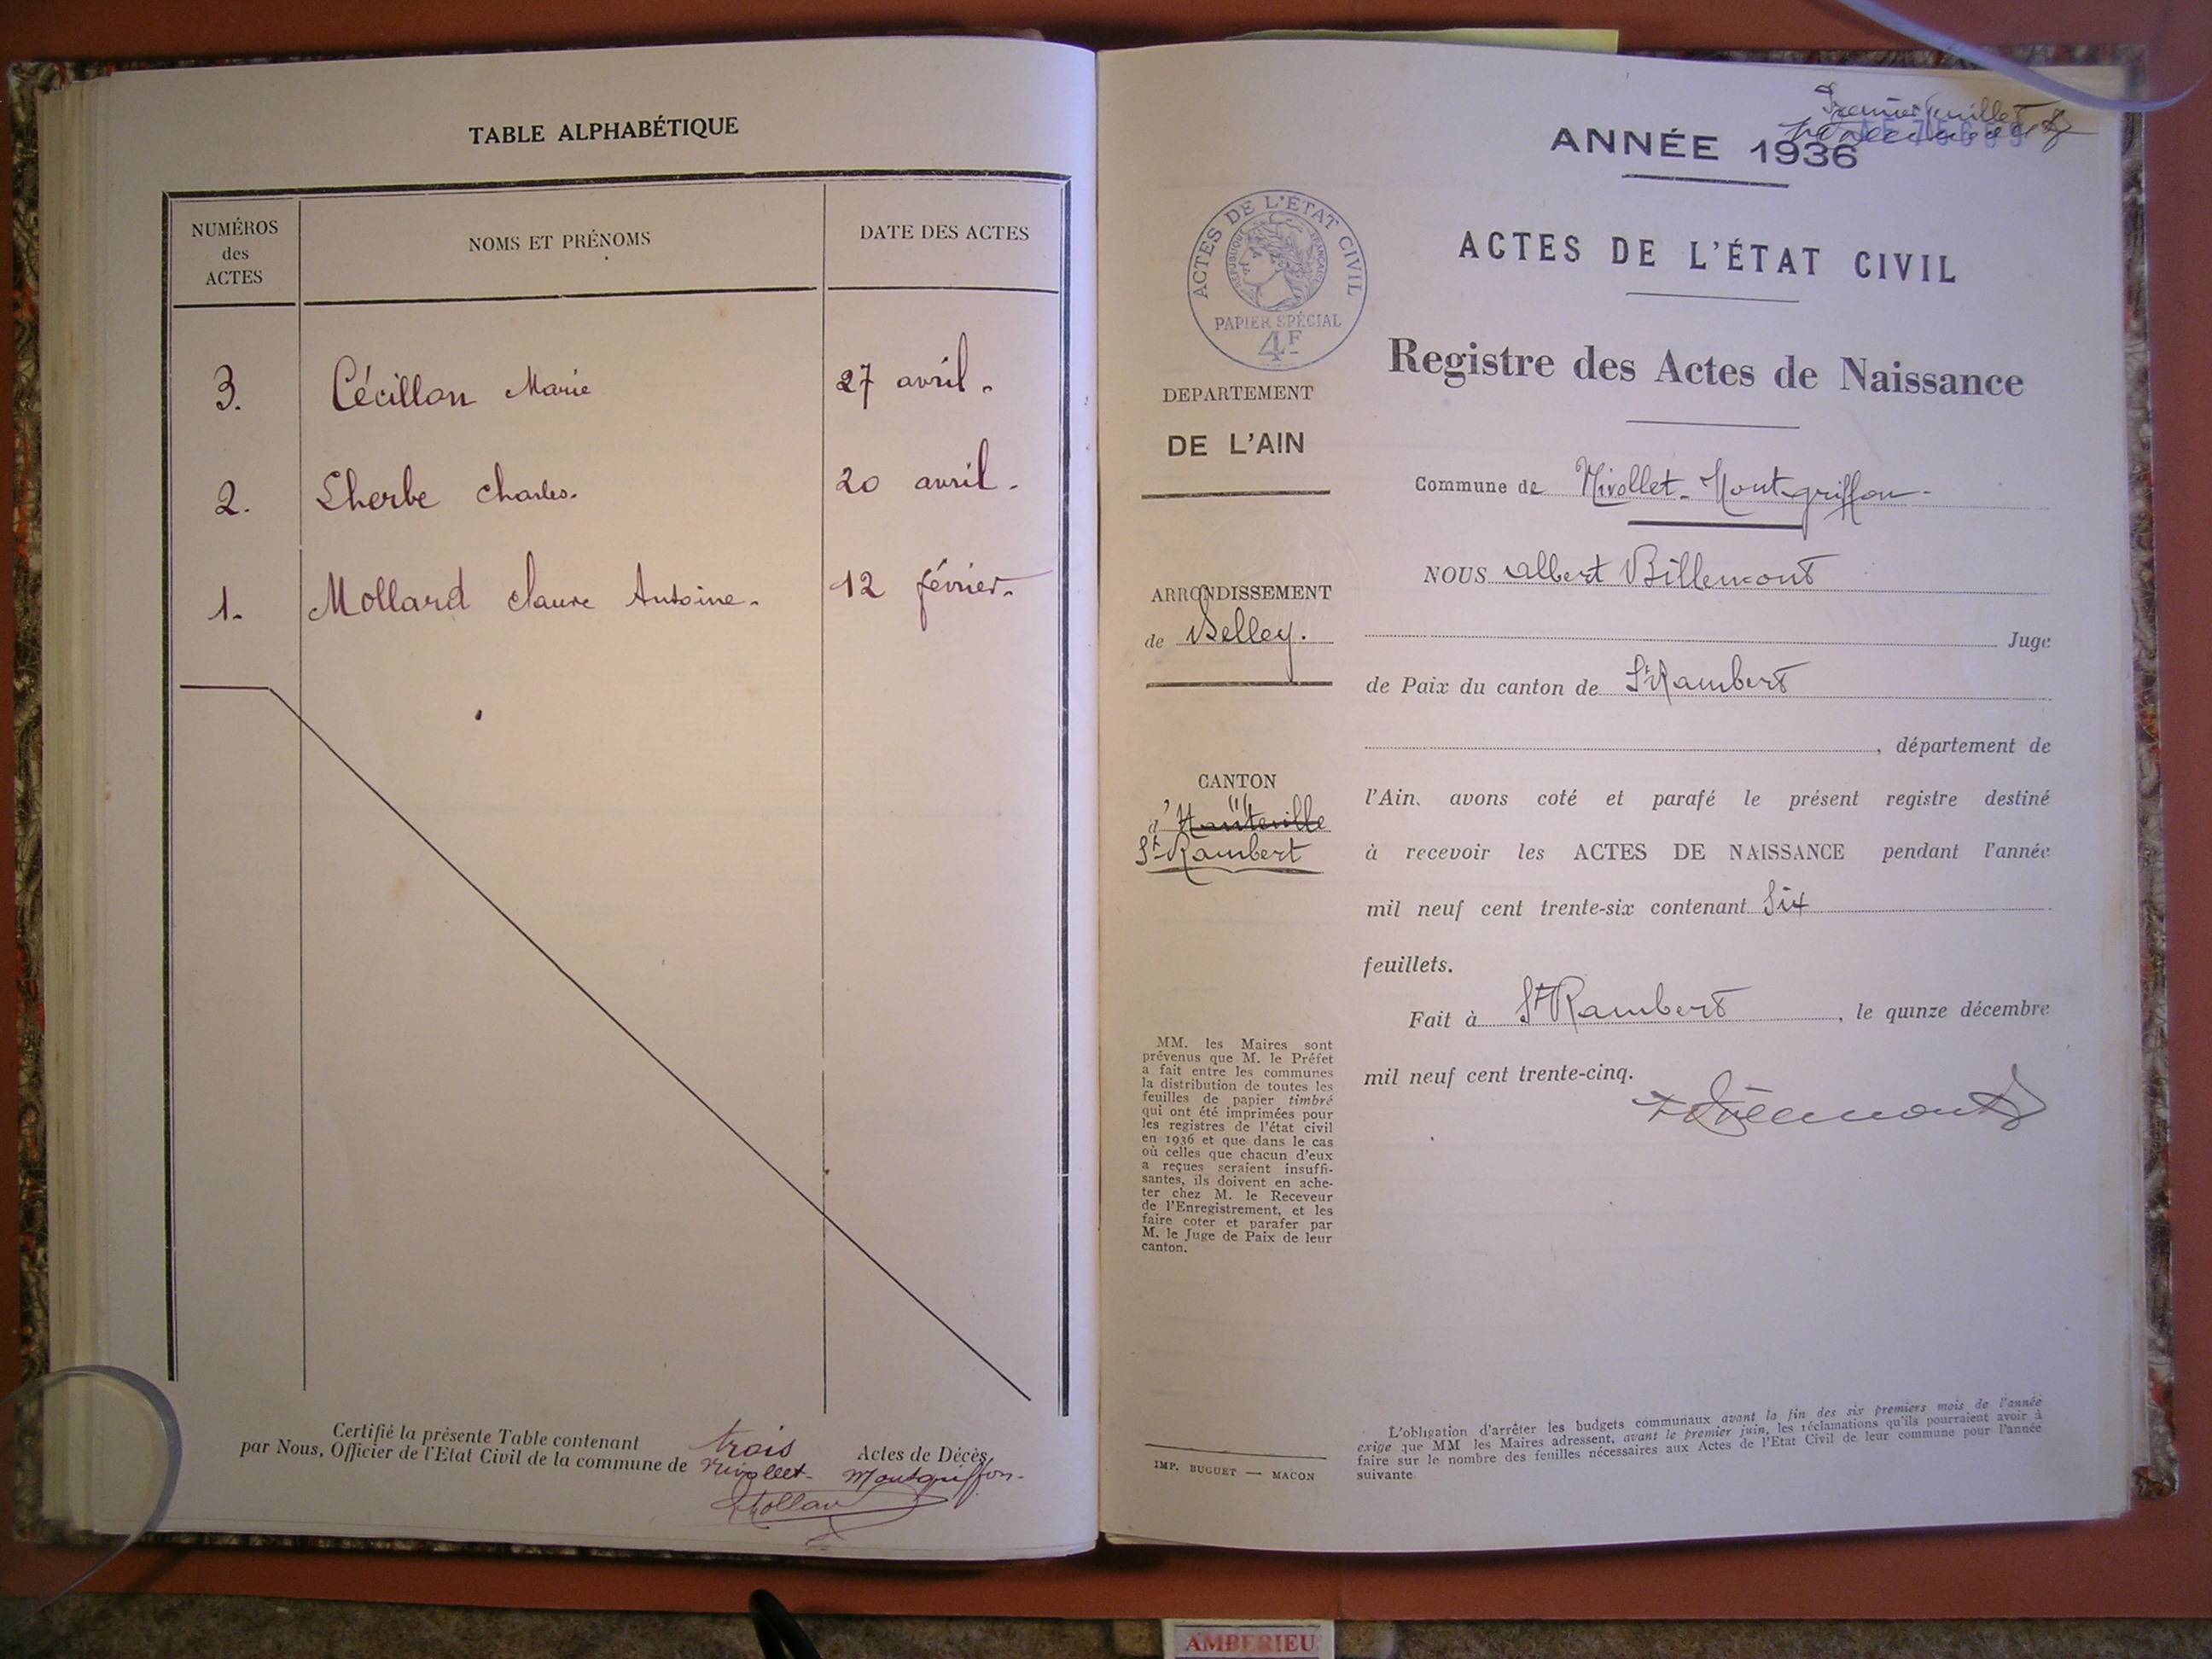 TABLE ALPHABÉTIQUE
NUMÉROS
des
ACTES
NOMS ET PRÉNOMS
DATE DES ACTES
3. Cécillon Marie 27 avril.
2. Lherbe Charles. 20 avril.
1. Mollard Claude Antoine. 12 février.
Certifié la présente Table contenant trois Actes de Décès
par Nous, Officier de l'Etat Civil de la commune de Nivollet-Montgriffon.
Premier feuillet
ANNÉE 1936
ACTES DE L'ÉTAT CIVIL
RÉPUBLIQUE FRANÇAISE
PAPIER SPÉCIAL
4F
ACTES DE L'ÉTAT CIVIL
Registre des Actes de Naissance
DEPARTEMENT
DE L'AIN
Commune de Nivollet-Montgriffon.
ARRONDISSEMENT
de Belley.
CANTON
d'Hauteville
St-Rambert
NOUS Albert Billemont
Juge
de Paix du canton de St Rambert
, département de
l'Ain, avons coté et parafé le présent registre destiné
à recevoir les ACTES DE NAISSANCE pendant l'année
mil neuf cent trente-six contenant Six
feuillets.
Fait à St Rambert, le quinze décembre
mil neuf cent trente-cinq.
MM. les Maires sont
prévenus que M. le Préfet
a fait entre les communes
la distribution de toutes les
feuilles de papier timbré
qui ont été imprimées pour
les registres de l'état civil
en 1936 et que dans le cas
où celles que chacun d'eux
a reçues seraient insuffi-
santes, ils doivent en ache-
ter chez M. le Receveur
de l'Enregistrement, et les
faire coter et parafer par
M. le Juge de Paix de leur
canton.
IMP. BUGUET — MACON
L'obligation d'arrêter les budgets communaux avant la fin des six premiers mois de l'année
exige que MM les Maires adressent, avant le premier juin, les réclamations qu'ils pourraient avoir à
faire sur le nombre des feuilles nécessaires aux Actes de l'Etat Civil de leur commune pour l'année
suivante
AMBERIEU